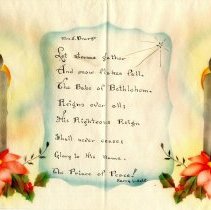 Let
And snow flakes fall,
The Babe of Bethlehem
Reigns over all;
His Righteous Reign
Shall never cease
Glory to His Name.
The Prince of Peace!